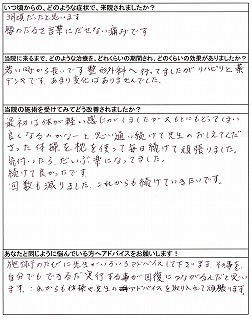 いつ頃からの、どのような症状で、来院されましたか?
3年頃だったと思います
腰のだるさ言葉にだせない痛みです
当院に来るまで、どのような治療を、どれくらいの期間され、どのくらいの効果がありましたか?
若い時から長いです整形外科へ行ってましたがリハビリと薬
デンキです、あまり変化はありませんでした。
当院の施術を受けてみてどう改善されましたか?
最初は体が軽い感じがしましたが
良くなるのかなーと思い通い続けて先生のおしえてくんだ
さった体操を枕を使って毎日続けて頑張りました。
気付いたら、だいぶ楽になってました。
続けて良かったです
回数も減りました、これからも続けていきたいです。
あなたと同じように悩んでいる方へアドバイスをお願いします!
施術のたびに先生がいろいろアドバイスして下さいます それを
自分でもできるだけ実行する事が回復につながるんだと思い
ます、これからも体操や先生のアドバイスを取り入れて頑張ります